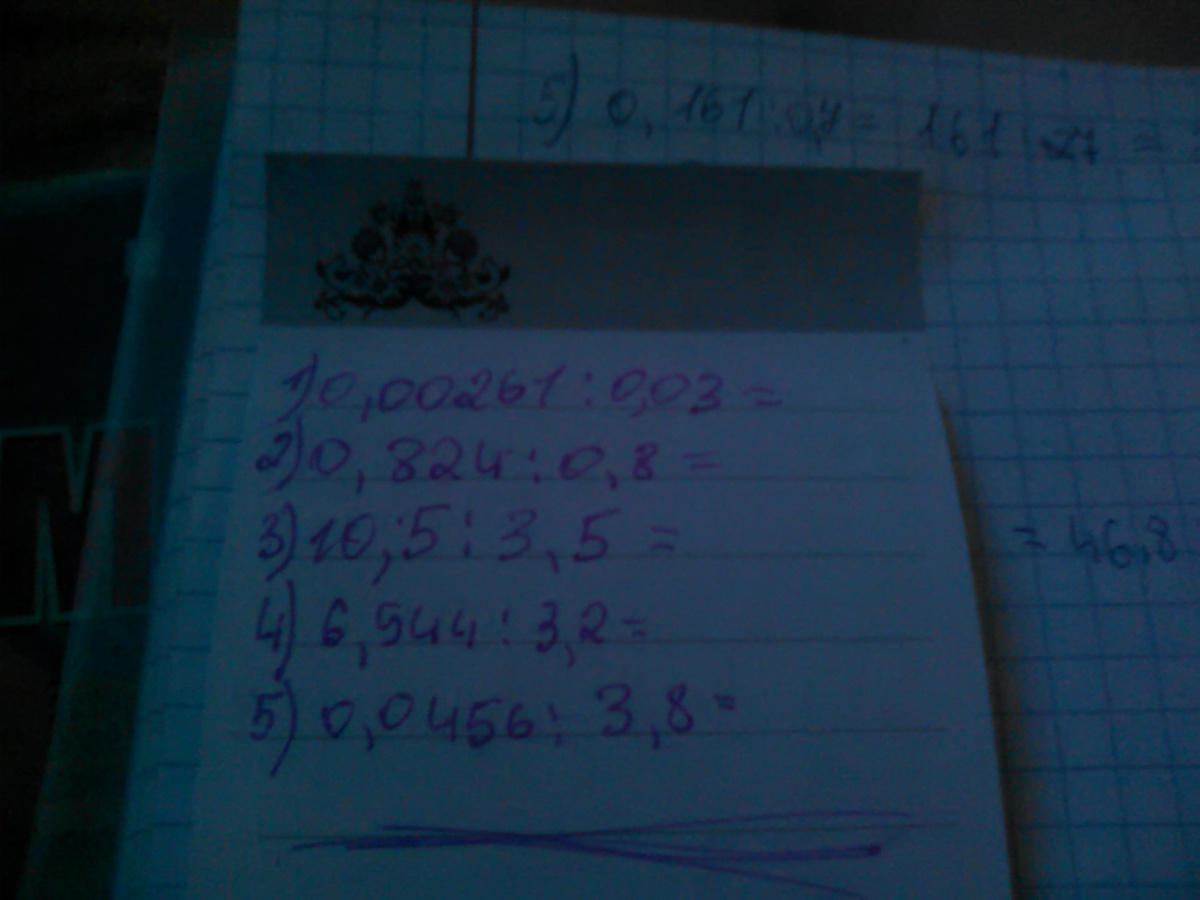 5) 0,161:0,7= 161:7 =
1) 0,00261:0,03=
2) 0,824:0,8=
3) 10,5:3,5=
= 46,8
4) 6,944:3,2=
5) 0,0456: 3,8=